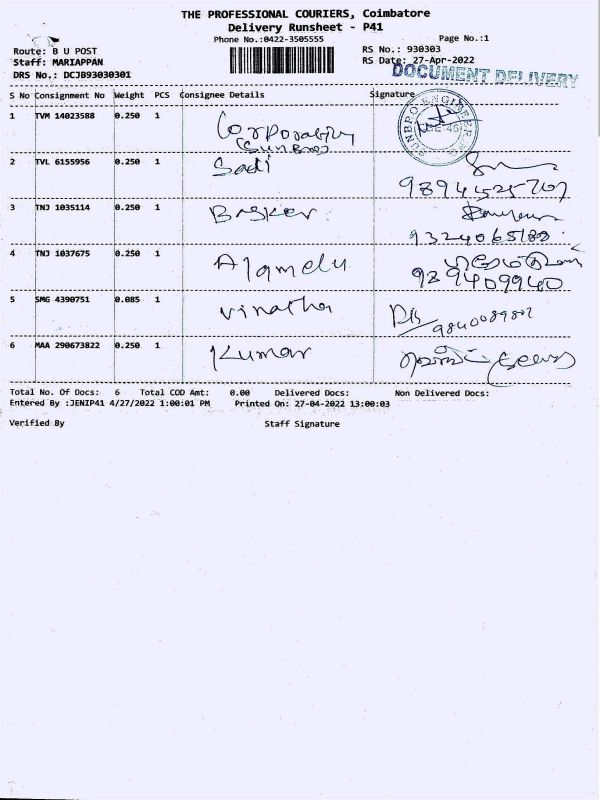 THE PROFESSIONAL COURIERS, Coimbatore
Delivery Runsheet - P41
Phone No.:0422-3505555
Page No.:1
Route: B U POST
RS No.: 930303
Staff: MARIAPPAN
RS Date: 27-Apr-2022
DRS No.: DCJB93030301
DOCUMENT DELIVERY
S No Consignment No Weight PCS Consignee Details Signature
1 TVM 14023588 0.250 1
(SunBro)
SUNBRO ENGINEERING
2 TVL 6155956 0.250 1 Sadi
9894525707
3 TNJ 1035114 0.250 1 Basker
9324065188
4 TNJ 1037675 0.250 1 Alamelu
9294409940
5 SMG 4390751 0.085 1 Vinatha
9840089802
6 MAA 290673822 0.250 1 Kumar
Total No. Of Docs: 6 Total COD Amt: 0.00 Delivered Docs: Non Delivered Docs:
Entered By :JENIP41 4/27/2022 1:00:01 PM Printed On: 27-04-2022 13:00:03
Verified By Staff Signature